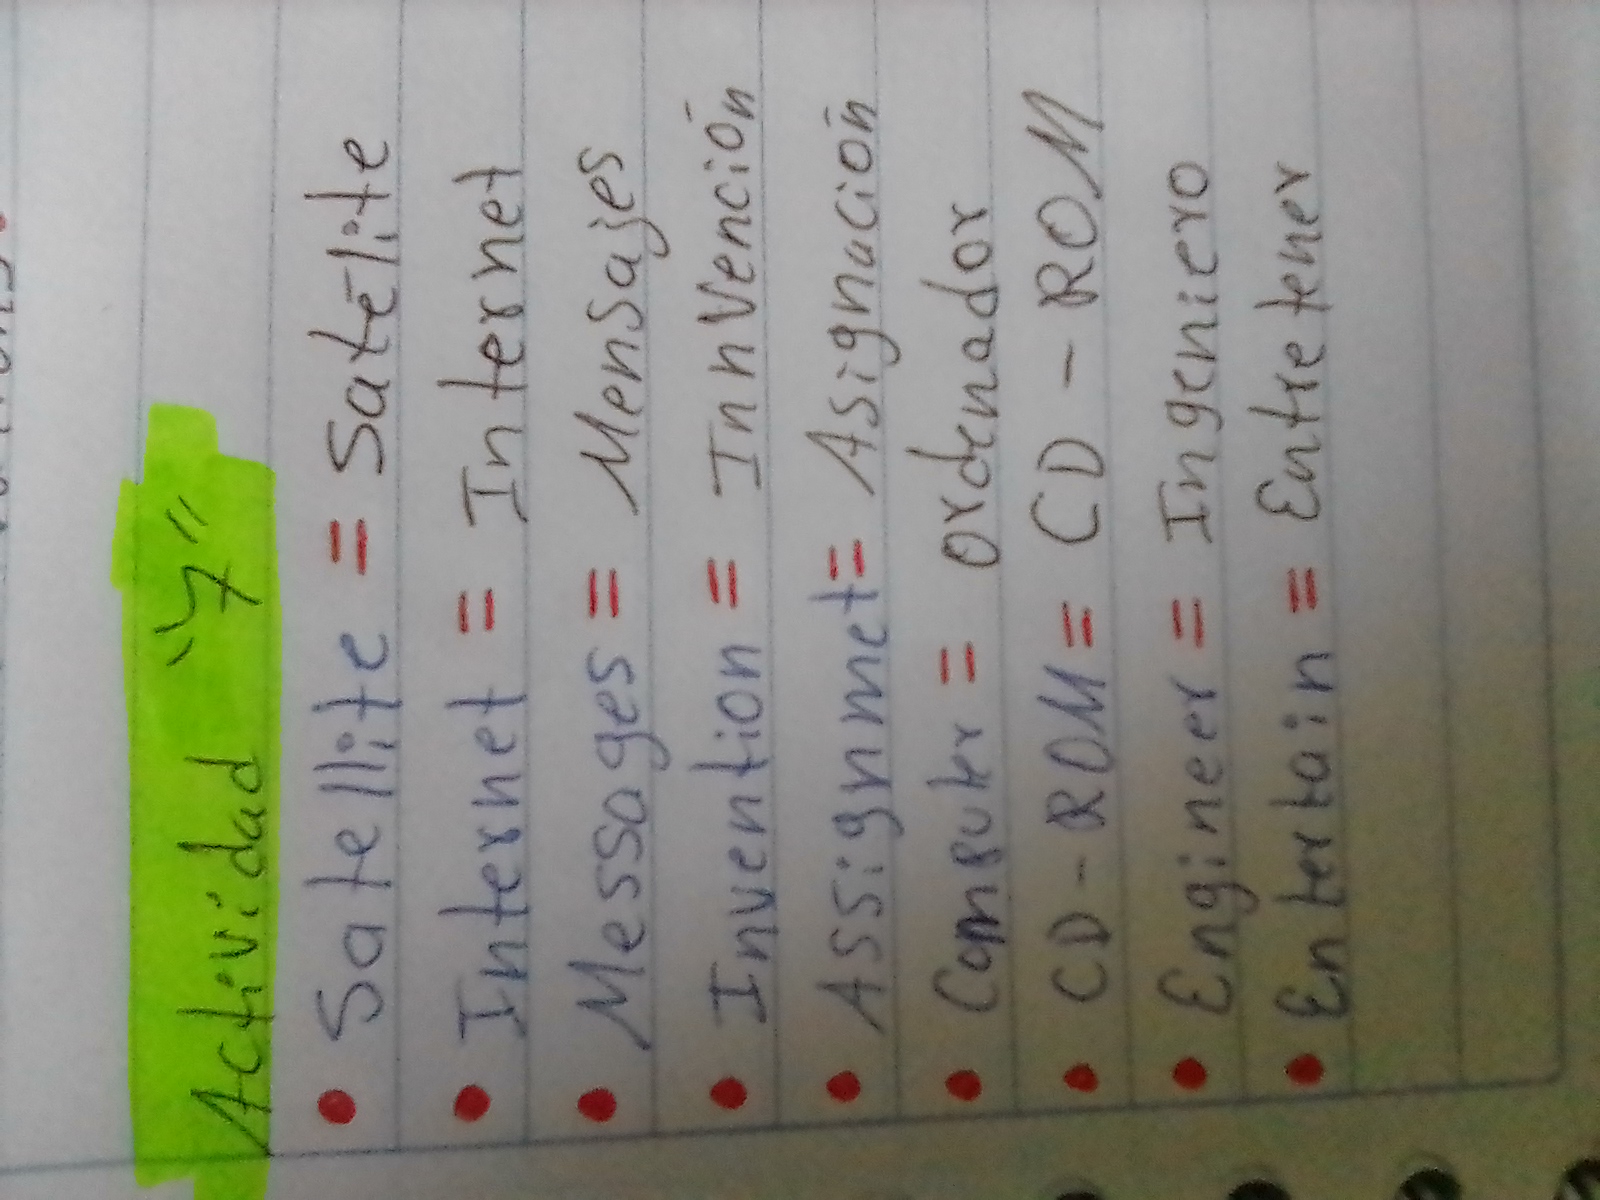 Actividad "7"
• Satellite = Satélite
• Internet = Internet
• Messages = Mensajes
• Invention = InnVención
• Assignmet = Asignación
• Computer = ordenador
• CD-ROM = CD-ROM
• Engineer = Ingeniero
• Entertain = Entretener